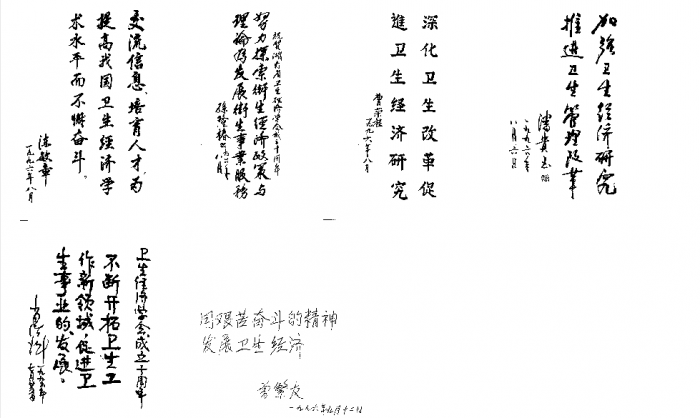 交流信息、培育人才,为
提高我国卫生经济学
术水平而不懈奋斗。
陈敏章
一九九六年八月
努力探索卫生经济政策与
理论为发展卫生事业服务
八月
深化卫生改革促
進卫生经济研究
曹荣桂
一九九六年八月
加强卫生经济研究
推进卫生管理改革
潘贵玉
一九九六年
八月六日
卫生经济学会成立十周年
不断开拓卫生工
作新领域,促进卫
生事业的发展。
用艰苦奋斗的精神
发展卫生经济
一九九六年九月十二日